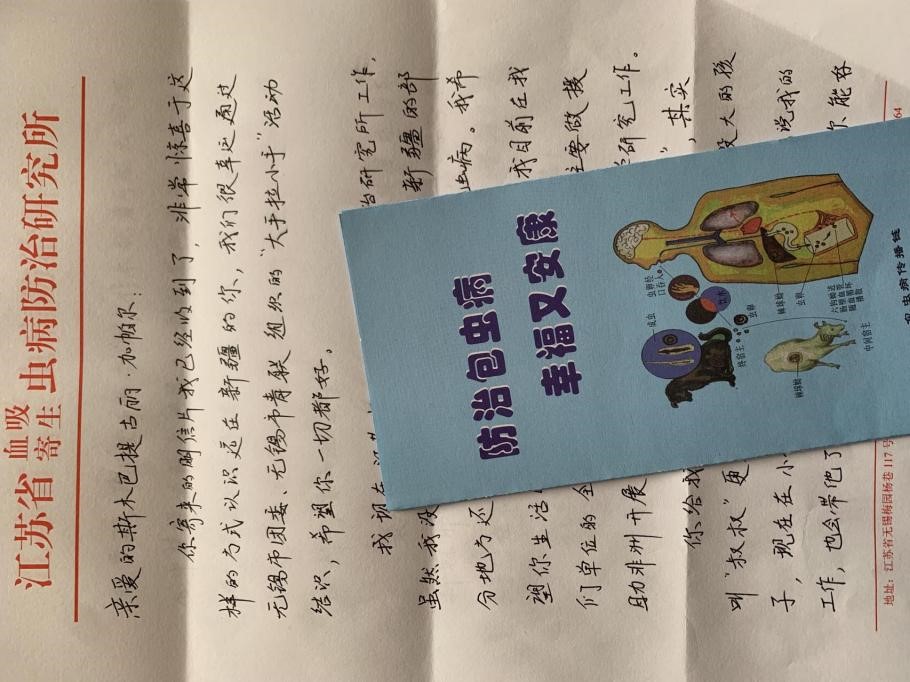 江苏省 血吸 虫病防治研究所
寄生
亲爱的斯木巴提古丽·加帕尔：
你寄来的明信片我已经收到了，非常惊喜于这
样的方式认识远在新疆的你，我们很幸运通过
无锡市团委、无锡市青联组织的“大手拉小手”活动
结识，希望你一切都好。
我现在 治研究所工作，
虽然我没 新疆的部
分地方还 虫病。我希
望你生活 我目前在我
们单位的全 主要做援
助非洲开展 研究工作。
你给我 ”，其实
叫“叔叔”更 大的孩
子，现在在小 说我的
工作，也会带他了 你能好
地址：江苏省无锡梅园杨巷 117 号 64
防治包虫病
幸福又安康
虫卵经
口吞入
成虫
终宿主
虫卵
棘球蚴
虫卵
六钩蚴
棘球蚴
中间宿主
包虫病传播链